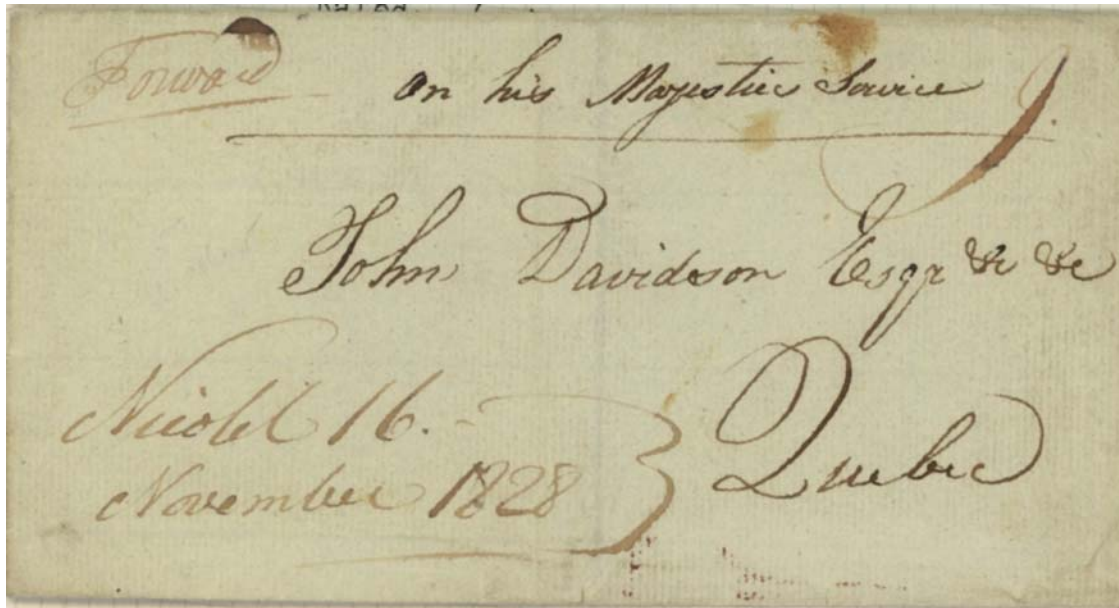 Forward
on his Majesties Service
John Davidson Esqr &c &c
Nicolet 16.-
November 1828
Quebec